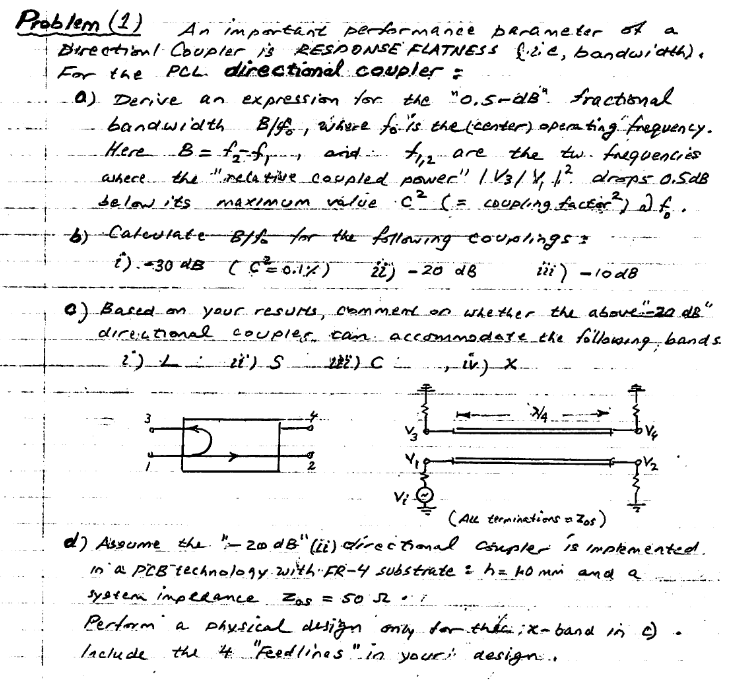 Problem (1) An important performance parameter of a
Directionl Coupler is RESPONSE FLATNESS (i.e, bandwidth).
For the PCL directional coupler :
a) Derive an expression for the "0.5-dB" fractional
bandwidth B/f₀, where f₀ is the (center) operating frequency.
Here B = f₂-f₁, and f₁,₂ are the tw. frequencies
where the "relative coupled power" |V₃/V₁|² drops 0.5dB
below its maximum value C² (= coupling factor²) @ f₀.
b) Calculate B/f₀ for the following couplings :
i) -30 dB (C²=0.1%) ii) -20 dB iii) -10dB
c) Based on your results, comment on whether the above "-20 dB"
directional coupler can accommodate the following bands
i) L ii) S iii) C , iv) X
3 4
1 2
λ/4
V₃ V₄
V₁ V₂
Vi
(All terminations = Zos)
d) Assume the "-20 dB" (ii) directional coupler is implemented
in a PCB technology with FR-4 substrate : h= mm and a
system impedance Zos = 50 Ω .
Perform a physical design only for the x-band in c) .
Include the 4 "Feedlines" in your design.